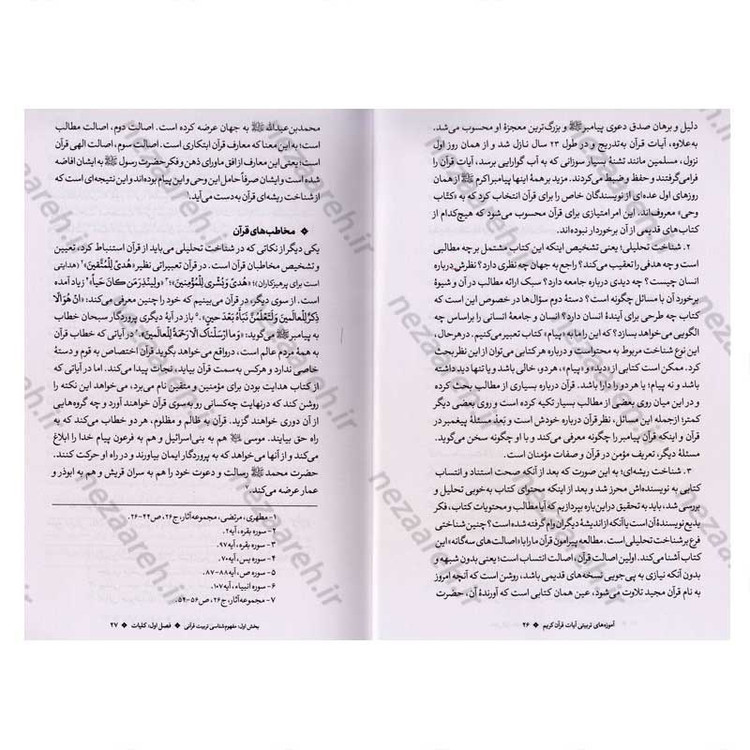 دلیل و برهان صدق دعوی پیامبر ﷺ و بزرگ‌ترین معجزهٔ او محسوب می‌شد.
به‌علاوه، آیات قرآن به‌تدریج و در طول ۲۳ سال نازل شد و از همان روز اول
نزول، مسلمین مانند تشنهٔ بسیار سوزانی که به آب گوارایی برسد، آیات قرآن را
فرامی‌گرفتند و حفظ و ضبط می‌کردند. مزید بر همهٔ اینها پیامبر اکرم ﷺ از همان
روزهای اول عده‌ای از نویسندگان خاص را برای قرآن انتخاب کرد که به «کتاب
وحی» معروف‌اند. این امر امتیازی برای قرآن محسوب می‌شود که هیچ‌کدام از
کتاب‌های قدیمی از آن برخوردار نبوده‌اند.
۲. شناخت تحلیلی؛ یعنی تشخیص اینکه این کتاب مشتمل بر چه مطالبی
است و چه هدفی را تعقیب می‌کند؟ راجع به جهان چه نظری دارد؟ نظرش درباره
انسان چیست؟ چه دیدی درباره جامعه دارد؟ سبک ارائه مطالب در آن و شیوهٔ
برخورد آن با مسائل چگونه است؟ دوم دستهٔ سؤال‌ها در خصوص این است که
کتاب چه طرحی برای آیندهٔ انسان دارد؟ انسان و جامعهٔ انسانی را براساس چه
الگویی می‌خواهد بسازد؟ که این را ما به «پیام» کتاب تعبیر می‌کنیم. درهرحال،
این نوع شناخت مربوط به محتواست و درباره هر کتابی می‌توان از این نظر بحث
کرد. ممکن است کتابی از «دید» و «پیام»، هر دو، خالی و یا تنها دید داشته
باشد و نه پیام؛ یا هر دو را دارا باشد. قرآن درباره بسیاری از مطالب بحث کرده
و در این میان روی بعضی از مطالب بسیار تکیه کرده است و روی بعضی دیگر
کمتر؛ ازجمله این مسائل، نظر قرآن درباره خودش و بُعدِ مسئلهٔ پیغمبر در
قرآن و اینکه قرآن پیامبر را چگونه معرفی می‌کند و با او چگونه سخن می‌گوید.
مسئلهٔ دیگر، تعریف مؤمن در قرآن و صفات مؤمنان است.
۳. شناخت ریشه‌ای؛ به این صورت که بعد از آنکه صحت استناد و انتساب
کتابی به نویسنده‌اش محرز شد و بعد از اینکه محتوای کتاب به‌خوبی تحلیل و
بررسی شد، باید به تحقیق در این باره بپردازیم که آیا مطالب و محتویات کتاب، فکر
بدیع نویسندهٔ آن است یا آنکه از اندیشهٔ دیگران وام گرفته شده است؟ چنین شناختی
فرع بر شناخت تحلیلی است. مطالعه پیرامون قرآن ما را با «اصالت‌های سه‌گانه» این
کتاب آشنا می‌کند. اولین اصالت قرآن، اصالت انتساب است؛ یعنی بدون شبهه و
بدون آنکه نیازی به پی‌جویی نسخه‌های قدیمی باشد، روشن است که آنچه امروز
به نام قرآن مجید تلاوت می‌شود، عین همان کتابی است که آورندهٔ آن، حضرت
آموزه‌های تربیتی آیات قرآن کریم ❖ ۲۶
محمدبن‌عبدالله ﷺ به جهان عرضه کرده است. اصالت دوم، اصالت مطالب
است؛ به این معنا که معارف قرآن ابتکاری است. اصالت سوم، اصالت الهی قرآن
است؛ یعنی این معارف از افق ماورای ذهن و فکر حضرت رسول ﷺ به ایشان افاضه
شده است و ایشان صرفاً حامل این وحی و این پیام بوده‌اند و این نتیجه‌ای است که
از شناخت ریشه‌ای قرآن به‌دست می‌آید.۱
❖ مخاطب‌های قرآن
یکی دیگر از نکاتی که در شناخت تحلیلی می‌باید از قرآن استنباط کرد، تعیین
و تشخیص مخاطبان قرآن است. در قرآن تعبیراتی نظیر «هُدىً لِلْمُتَّقينَ»۲ (هدایتی
است برای پرهیزکاران)؛ «هُدىً وَبُشْرى لِلْمُؤْمِنينَ»۳؛ «لِيُنْذِرَ مَن كَانَ حَيّاً»۴ زیاد آمده
است. از سوی دیگر، در قرآن می‌بینیم که هدف خود را چنین معرفی می‌کند: «انْ هُوَ الّا
ذِكْرٌ لِلْعالَمينَ وَلَتَعْلَمُنَّ نَبَأَهُ بَعْدَ حينٍ».۵ باز در آیهٔ دیگری پروردگار سبحان خطاب
به پیامبر ﷺ می‌گوید: «وَ ما ارْسَلْناكَ الّا رَحْمَةً لِلْعالَمينَ».۶ در آیاتی که خطاب قرآن
به همهٔ مردم عالم است، درواقع می‌خواهد بگوید قرآن اختصاص به قوم و دستهٔ
خاصی ندارد و هرکس به سمت قرآن بیاید، نجات پیدا می‌کند. اما در آیاتی که
از کتاب هدایت بودن برای مؤمنین و متقین نام می‌برد، می‌خواهد این نکته را
روشن کند که درنهایت چه‌کسانی رو به سوی قرآن خواهند آورد و چه گروه‌هایی
از آن دوری خواهند گزید. قرآن به ظالم و مظلوم، هر دو خطاب می‌کند که به
راه حق بیایند. موسی ﷺ هم به بنی‌اسرائیل و هم به فرعون پیام خدا را ابلاغ
می‌کند و از آنها می‌خواهد که به پروردگار ایمان بیاورند و در راه او حرکت کنند.
حضرت محمد ﷺ رسالت و دعوت خود را هم به سران قریش و هم به ابوذر و
عمار عرضه می‌کند.۷
۱- مطهری، مرتضی، مجموعه‌آثار، ج۲۶، ص۲۴-۲۶.
۲- سوره بقره، آیه۲.
۳- سوره بقره، آیه۹۷.
۴- سوره یس، آیه۷۰.
۵- سوره ص، آیه۸۸-۸۷.
۶- سوره انبیاء، آیه۱۰۷.
۷- مجموعه آثار، ج۲۶، ص۵۶-۵۴.
بخش اول: مفهوم‌شناسی تربیت قرآنی ❖ فصل اول: کلیات ❖ ۲۷
nezaareh.ir